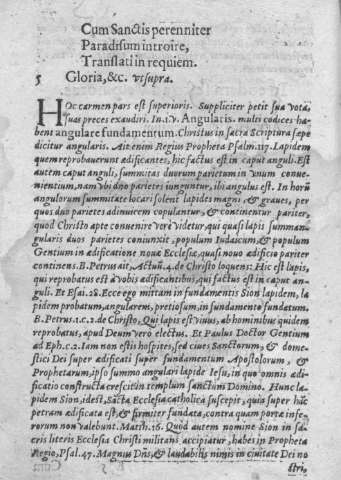 Cum Sanctis perenniter
Paradisum introire,
Translati in requiem.
5 Gloria, &c. vt supra.
HOc carmen pars est superioris. Suppliciter petit sua vota,
suas preces exaudiri. In. 1. v. Angularis. multi codices ha-
bent angulare fundamentum. Christus in sacra Scriptura sæpe
dicitur angularis. Ait enim Regius Propheta Psalm. 117. Lapidem
quem reprobauerunt ædificantes, hic factus est in caput anguli. Est
autem caput anguli, summitas duorum parietum in vnum conue-
nientium, nam vbi duo parietes iunguntur, ibi angulus est. In horũ
angulorum summitate locari solent lapides magni, & graues, per
quos duo parietes adinuicem copulantur, & continentur pariter,
quod Christo apte conuenire verè videtur, qui quasi lapis summan-
gularis duos parietes coniunxit, populum Iudaicum, & populum
Gentium in ædificatione nouæ Ecclesiæ, quasi nouo ædificio pariter
continens. B. Petrus ait, Actuũ. 4. de Christo loquens: Hic est lapis,
qui reprobatus est à vobis ædificantibus, qui factus est in caput an-
guli. Et Esai. 28. Ecce ego mittam in fundamentis Sion lapidem, la
pidem probatum, angularem, pretiosum, in fundamento fundatum.
B. Petrus. 1. c. 2. de Christo, Qui lapis est viuus, ab hominibus quidem
reprobatus, apud Deum vero electus. Et Paulus Doctor Gentium
ad Eph. c. 2. Iam non estis hospites, sed ciues Sanctorum, & dome-
stici Dei super ædificati super fundamentum Apostolorum, &
Prophetarum, ipso summo angulari lapide Iesu, in quo omnis ædi-
ficatio constructa crescit in templum sanctum Domino. Hunc la-
pidem Sion, idest, Sãcta Ecclesia catholica suscepit, quia super hãc
petram ædificata est, & firmiter fundata, contra quam portæ infe-
rorum non valebunt. Matth. 16. Quod autem nomine Sion in sa-
cris literis Ecclesia Christi militans accipiatur, habes in Propheta
Regio, Psal. 47. Magnus Dñs, & laudabilis nimis in ciuitate Dei no
stri,